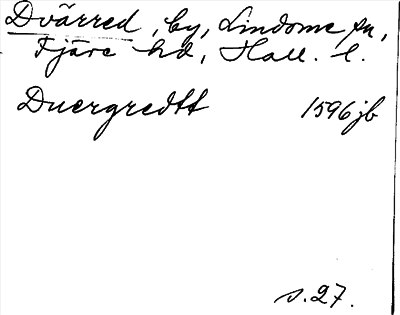 Dvärred, by, Lindome sn,
Fjäre hd, Hall. l.
Duergredtt 1596 jb
s. 27.